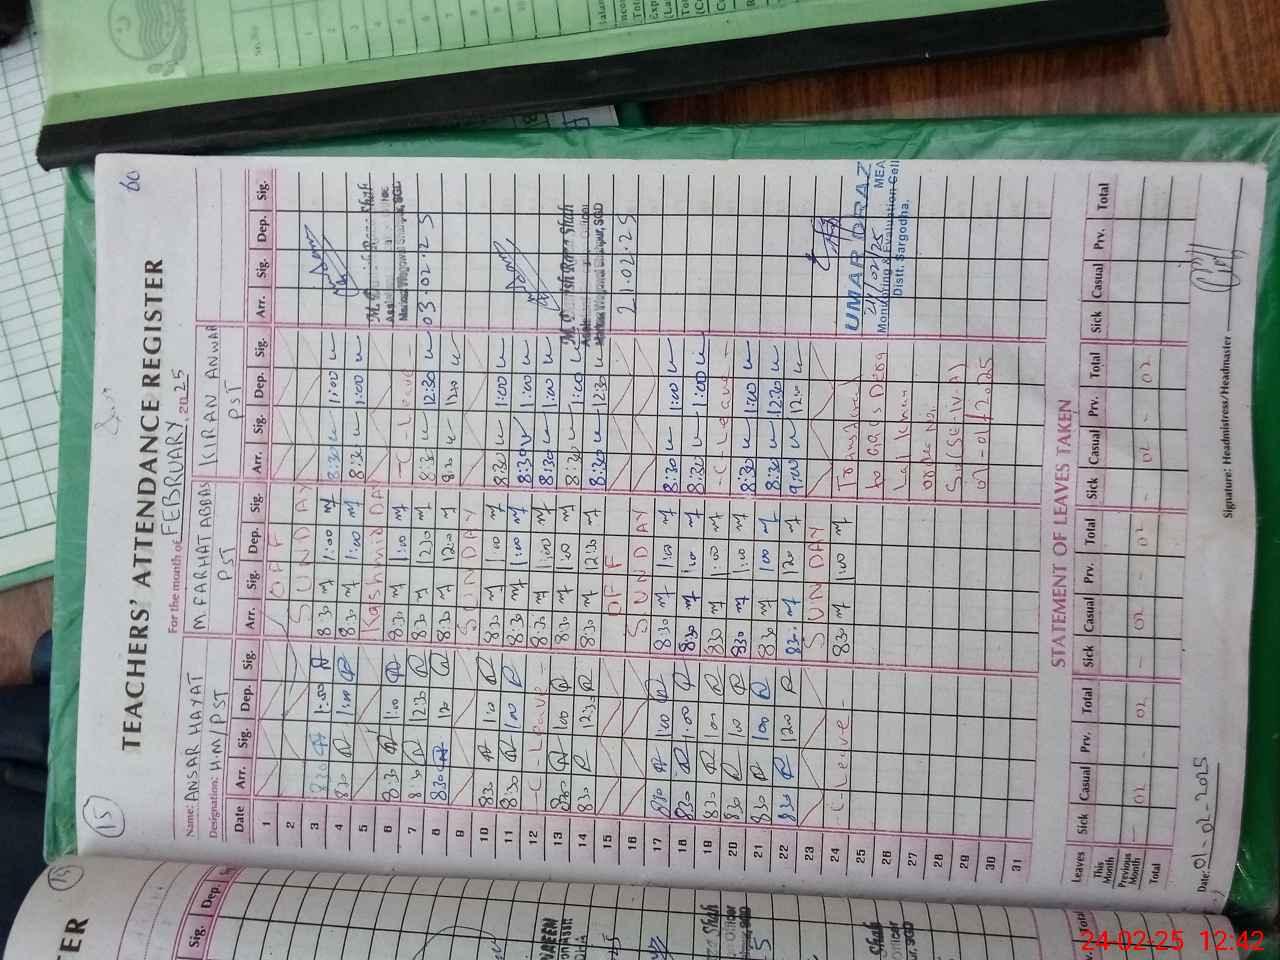 60
15
TEACHERS' ATTENDANCE REGISTER
For the month of FEBRUARY, 2025
Name: ANSAR HAYAT M. FARHAT ABBAS KIRAN ANWAR
Designation: H.M/PST PST PST
Date Arr. Sig. Dep. Sig. Arr. Sig. Dep. Sig. Arr. Sig. Dep. Sig. Arr. Sig. Dep. Sig.
1 OFF
2 SUNDAY
3 8:30 1:00 8:30 1:00 8:30 1:00
4 8:30 1:00 8:30 1:00 8:30 1:00
5 Kashmir Day
6 8:30 1:00 8:30 1:00 - C - Leave -
7 8:30 12:30 8:30 12:30 8:30 12:30
8 8:30 12 8:30 12:00 8:30 12:00
03.02.25
9 SUNDAY
10 8:30 1:00 8:30 1:00 8:30 1:00
11 8:30 1:00 8:30 1:00 8:30 1:00
12 - C - Leave - 8:30 1:00 8:30 1:00
13 8:30 1:00 8:30 1:00 8:30 1:00
14 8:30 12:30 8:30 12:30 8:30 12:30
15 OFF
16 SUNDAY
21.02.25
17 8:30 1:00 8:30 1:00 8:30 1:00
18 8:30 1:00 8:30 1:00 8:30 1:00
19 8:30 1:00 8:30 1:00 - C - Leave -
20 8:30 1:00 8:30 1:00 8:30 1:00
21 8:30 1:00 8:30 1:00 8:30 12:30
22 8:30 12:00 8:30 12:00 9:00 12:00
23 SUNDAY
24 - C Leave - 8:30 1:00
25
26
27
28
29
30
31
UMAR DRAZ
24/02/25 MEA
Monitoring & Evaluation Cell
Distt. Sargodha.
STATEMENT OF LEAVES TAKEN
Leaves Sick Casual Prv. Total Sick Casual Prv. Total Sick Casual Prv. Total Sick Casual Prv. Total
This Month
Previous Month - 02 - 02 - 02 - 02 - 02 - 02
Total
Date: 01-02-2025
Signature: Headmistress/Headmaster
24-02-25 12:42